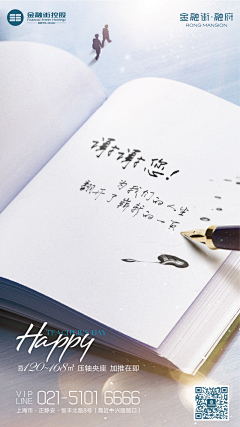 金融街控股
金融街·融府
RONG·MANSION
谢谢您!
为我们的人生
翻开了崭新的一页
TEACHER'S DAY
Happy
约120~168㎡ 压轴央座 加推在即
VIP
LINE
021-5101 6666